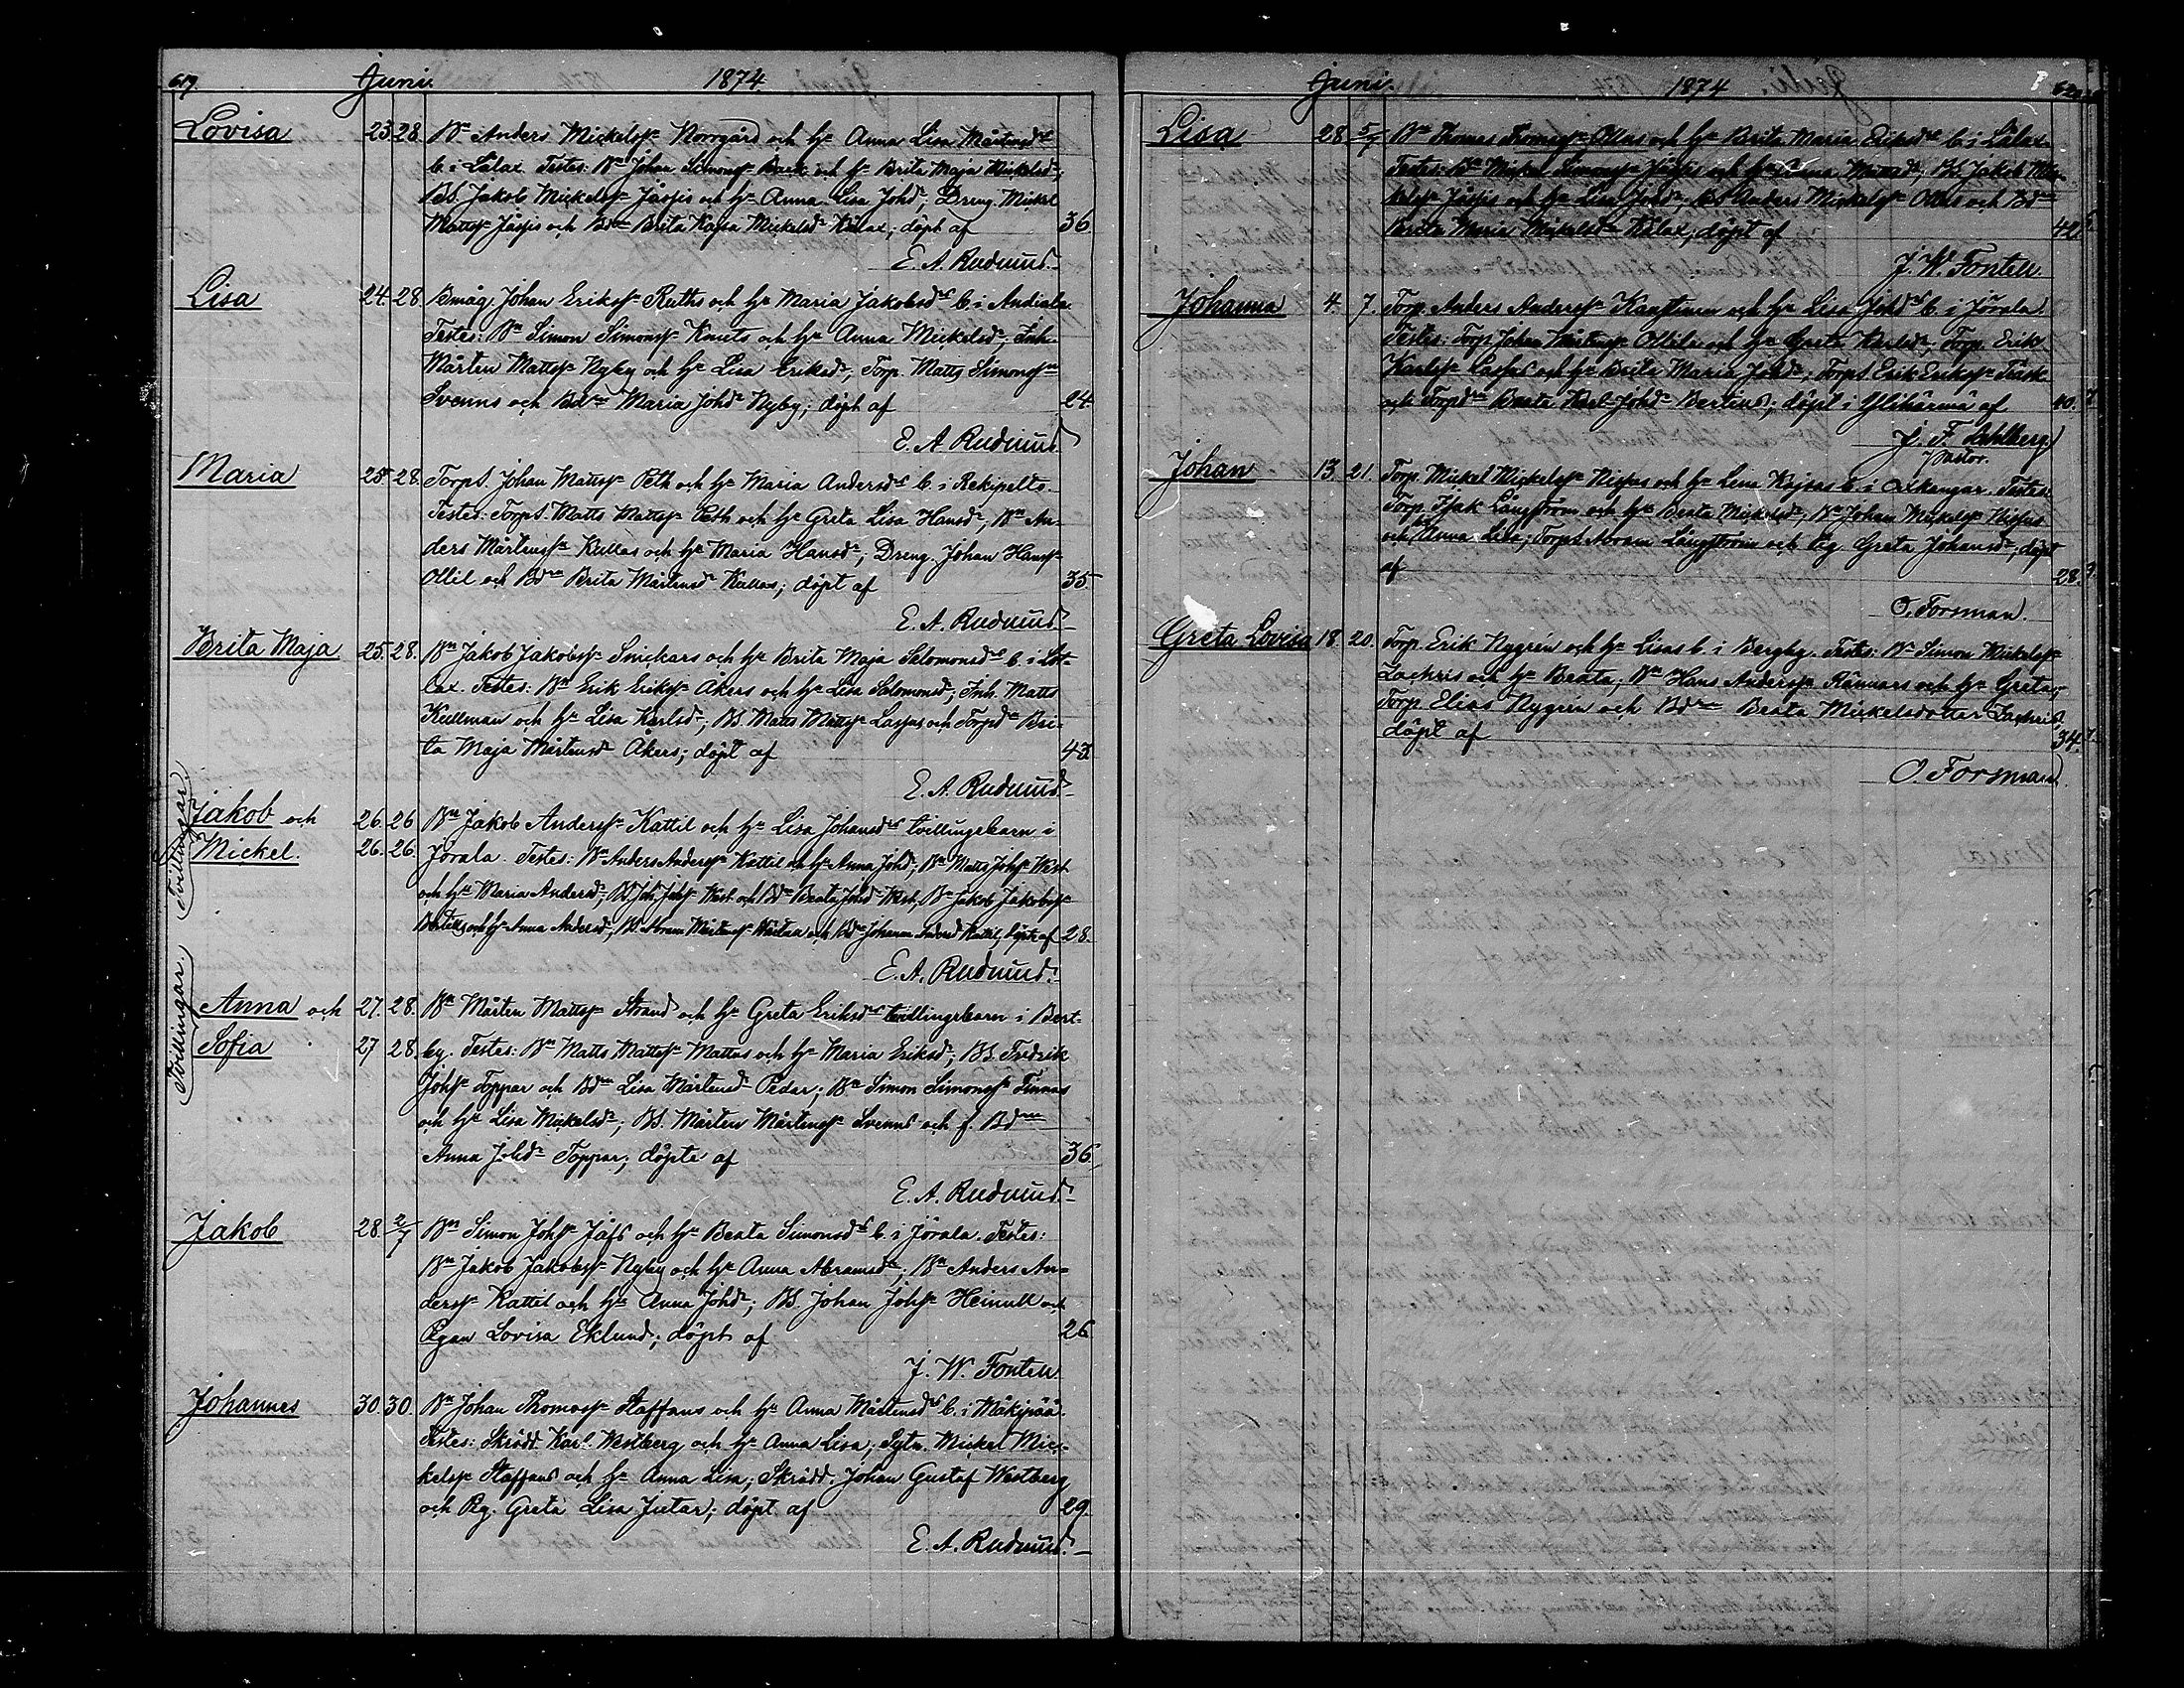 619. Juni. 1874
Lovisa 23. 28. Bn Anders Mickelsn Norrgård och h. Anna Lisa Mårtensds
b. i Lålax. Testes: Bn Johan Simonsn Back och h. Brita Maja Mickelsd;
BS. Jakob Mickelsn Jåssis och h. Anna Lisa Johd; Dreng. Mickel
Mattsn Jåssis och Bdn Brita Kajsa Mickelsd Kålax; döpt af 36.
E. A. Rudnäs.
Lisa 24. 28. Bmåg. Johan Eriksn Ruths och h. Maria Jakobsds b. i Andiala.
Testes: Bn Simon Simonsn Knuts och h. Anna Mickelsd; Inh.
Mårten Mattsn Nyby och h. Lisa Eriksd; Torp. Matts Simonsn
Svenns och Bdn Maria Johd Nyby; döpt af 24.
E. A. Rudnäs
Maria 25. 28. TorpS. Johan Mattsn Peth och h. Maria Andersds b. i Rekipelto.
Testes: TorpS. Matts Mattsn Peth och h. Greta Lisa Hansd; Bn An-
ders Mårtensn Kullas och h. Maria Hansd; Dreng. Johan Hansn
Ollil och Bdn Brita Mårtensd Kullas; döpt af 35.
E. A. Rudnäs
Brita Maja 25. 28. Bn Jakob Jakobsn Snickars och h. Brita Maja Salomonsds b. i Lot-
lax. Testes: Bn Erik Eriksn Åkers och h. Lisa Salomonsd; Inh. Matts
Kullman och h. Lisa Karlsd; BS. Matts Mattsn Lassas och Torpd Bri-
ta Maja Mårtensd Åkers; döpt af 43.
E. A. Rudnäs
Tvillingar.
Jakob och 26. 26. Bn Jakob Andersn Kattil och h. Lisa Johansds tvillingebarn i
Mickel. 26. 26. Jörala. Testes: Bn Anders Andersn Kattil och h. Anna Johd; Bn Matts Johsn West
och h. Maria Andersd; BS. Joh. Johsn West och Bd Beata Johd West; Bn Jakob Jakobsn
Bertils och h. Anna Andersd; BS. Abram Mårtensn och Bd Johanna Kattil; döpte af 28.
E. A. Rudnäs.
Tvillingar.
Anna och 27. 28. Bn Mårten Mattsn Strand och h. Greta Eriksds tvillingebarn i Bert-
Sofia 27 28. by. Testes: Bn Matts Mattsn Mattus och h. Maria Eriksd; BS. Fredrik
Johsn Toppar och Bdn Lisa Mårtensd Pedar; Bn Simon Simonsn Finnas
och h. Lisa Mickelsd; BS. Mårten Mårtensn Svenns och f. Bdn
Anna Johd Toppar; döpte af 36.
E. A. Rudnäs.
Jakob 28. 2/7 Bn Simon Johsn Jåfs och h. Beata Simonsds b. i Jörala. Testes:
Bn Jakob Jakobsn Nyby och h. Anna Abramsd; Bn Anders An-
dersn Kattil och h. Anna Johd; BS. Johan Johsn Heinull och
Pigan Lovisa Eklund; döpt af 26.
J. W. Fontell
Johannes 30. 30. Bn Johan Thomasn Staffans och h. Anna Mårtensds b. i Mäkipää.
Testes: Skrädd. Karl Westberg och h. Anna Lisa; Sytn. Mickel Mic-
kelsn Staffans och h. Anna Lisa; Skrädd. Johan Gustaf Westberg
och Pig. Greta Lisa Jutar; döpt af 29.
E. A. Rudnäs.
Juni. 1874
Lisa 28. 5/7 Bn Thomas Thomasn Ollas och h. Brita Maria Eriksds b. i Lålax.
Testes: Bn Mickel Simonsn Jåssis och h. Anna; BS. Jakob Mic-
kelsn Jåssis och h. Lisa Johd; BS Anders Mickelsn Ollas och Bdn
Brita Maria Mickelsd Kålax; döpt af 42.
J. W. Fontell.
Johanna 4. 7. Torp. Anders Andersn Kaustinen och h. Lisa Johds b. i Jörala.
Testes: Torp. Johan Mårtensn Ollila och h. Greta Karlsd; Torp. Erik
Karlsn Lassus och h. Brita Maria Johd; TorpS. Erik Eriksn Finsk
och Torpdn Beata Johd Bertils; döpt i Ylihärmä af 40.
J. F. Sahlberg
Pastor.
Johan 13. 21. Torp. Mickel Mickelsn Nissas och h. Lena Kajsas b. i Alkangar. Testes:
Torp. Isak Långström och h. Beata Mickelsd; Bn Johan Mickelsn Nissas
och Anna Lisa; TorpS. Abram Långström och Pig. Greta Johansd; döpt
af 28.
O. Forsman.
Greta Lovisa 18. 20. Torp. Erik Nygrén och h. Lisas b. i Bergby. Testes: Bn Simon Mickelsn
Zachris och h. Beata; Bn Hans Andersn Rännars och h. Greta;
Torp. Elias Nygrén och Bdn Beata Mickelsdotter Zachris;
döpt af 34.
O. Forsman.